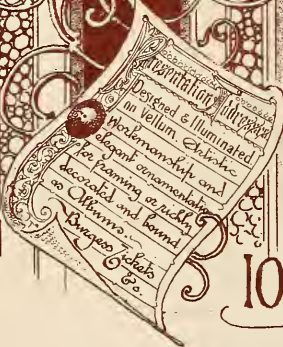 Presentation Addresses
Designed & Illuminated
on Vellum Artistic
Workmanship and
elegant ornamentation
for framing or richly
decorated and bound
as Albums.
Burgess Tickets
&c.
10